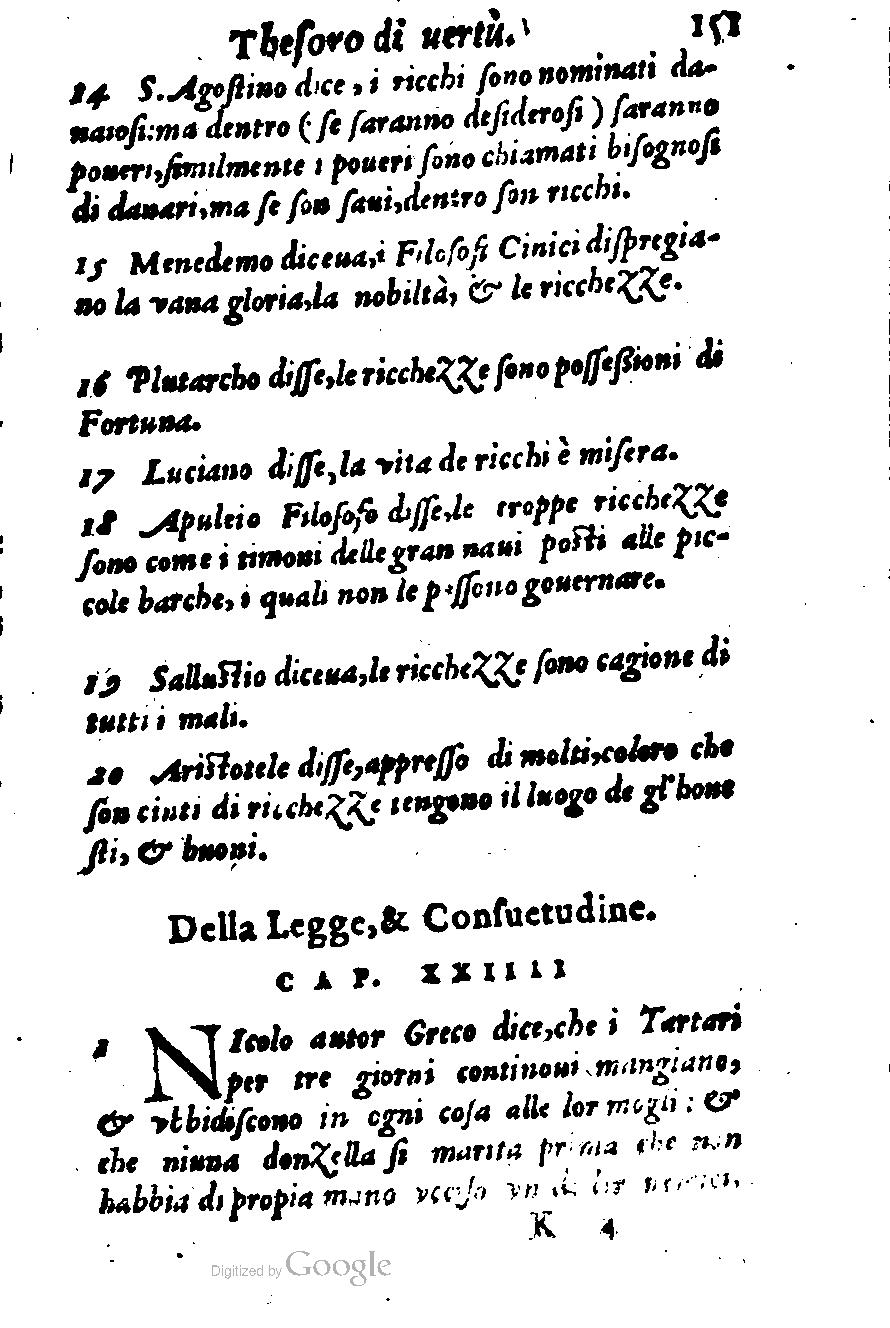 Theſoro di uertù. 151
14 S. Agoſtino dice, i ricchi ſono nominati da-
naioſi:ma dentro (ſe ſaranno deſideroſi) ſaranno
poueri,ſimilmente i poueri ſono chiamati biſognoſi
di danari,ma ſe ſon ſaui,dentro ſon ricchi.
15 Menedemo diceua,i Filoſofi Cinici diſpregia-
no la vana gloria,la nobiltà, & le ricchezze.
16 Plutarcho diſſe,le ricchezze ſono poſſeßioni di
Fortuna.
17 Luciano diſſe,la vita de ricchi è miſera.
18 Apuleio Filoſofo diſſe,le troppe ricchezze
ſono come i timoni delle gran naui poſti alle pic-
cole barche, i quali non le poſſono gouernare.
19 Salluſtio diceua,le ricchezze ſono cagione di
tutti i mali.
20 Ariſtotele diſſe,appreſſo di molti,coloro che
ſon cinti di ricchezze tengono il luogo de gl'hone
ſti, & buoni.
Della Legge,& Conſuetudine.
CAP. XXIIII
1 NIcolo autor Greco dice,che i Tartari
per tre giorni continoui mangiano,
& vbbidiſcono in ogni coſa alle lor mogli: &
che niuna donzella ſi marita prima che non
habbia di propia mano vcciſo vn de lor nemici.
K 4
Digitized by Google